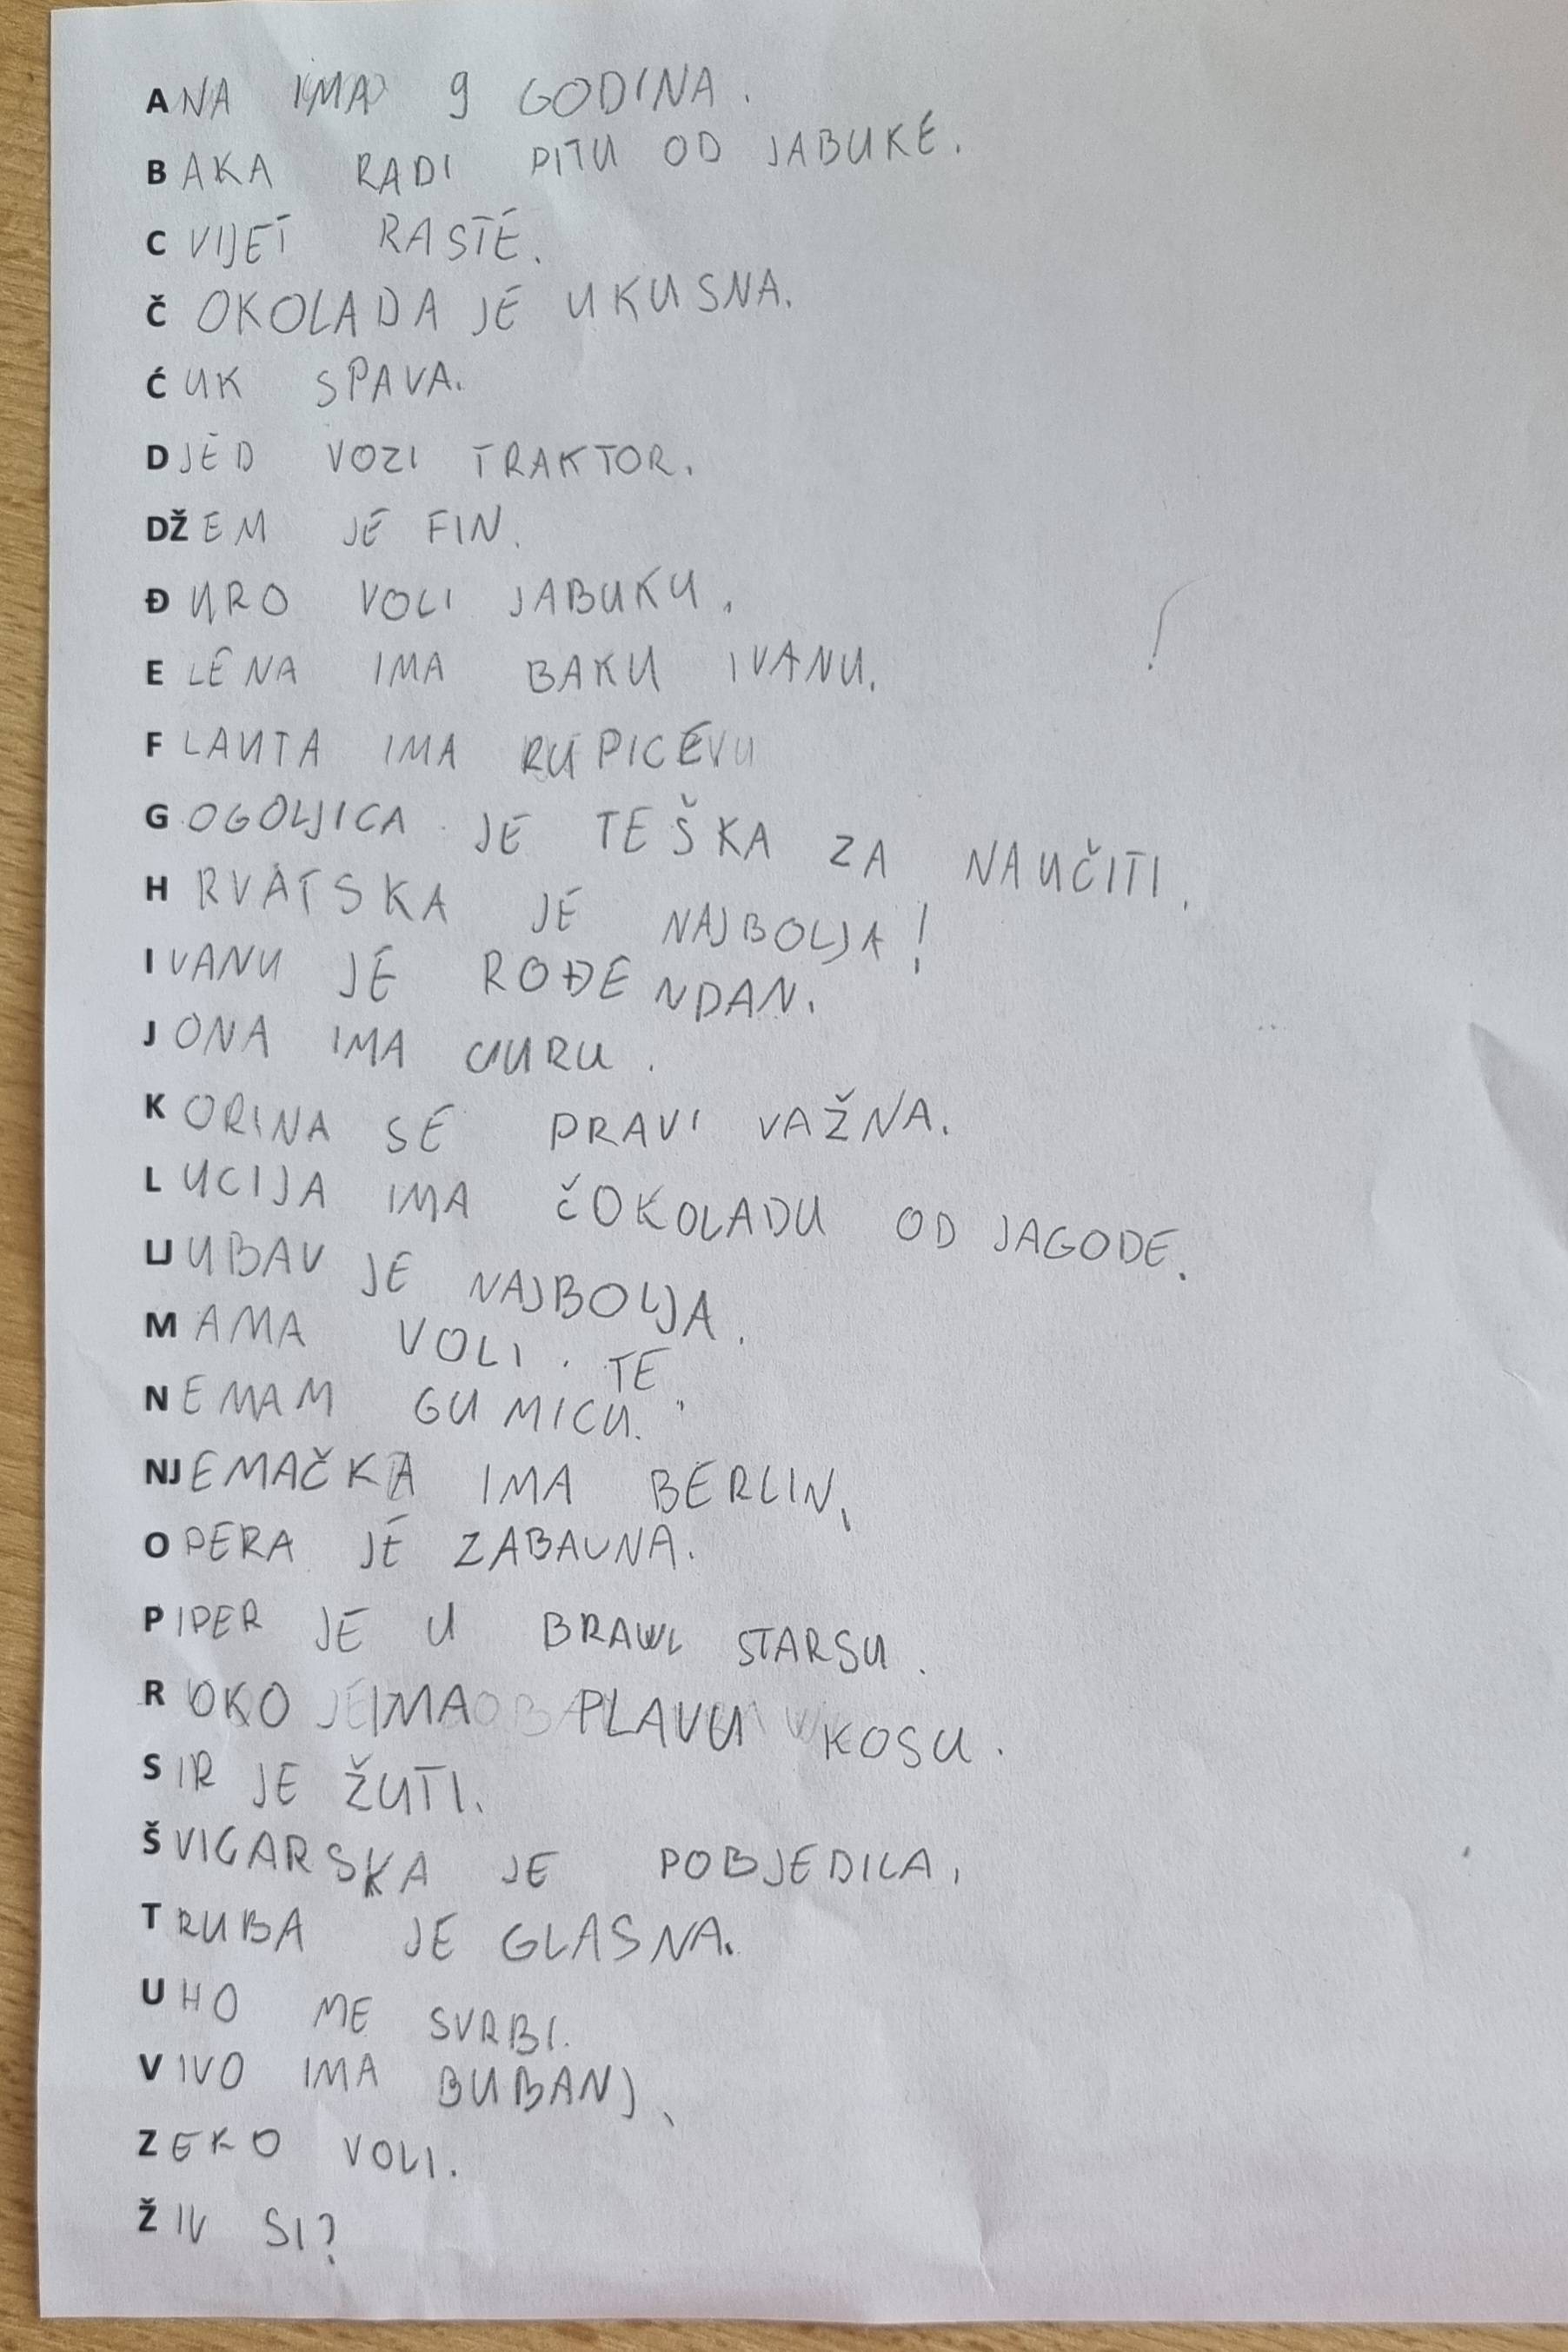 ANA IMA 9 GODINA.
BAKA RADI PITU OD JABUKE.
CVIJET RASTE.
ČOKOLADA JE UKUSNA.
ĆUK SPAVA.
DJED VOZI TRAKTOR.
DŽEM JE FIN.
ĐURO VOLI JABUKU.
ELENA IMA BAKU IVANU.
FLAUTA IMA RUPICE
GOGOLJICA JE TEŠKA ZA NAUČITI.
HRVATSKA JE NAJBOLJA!
IVANU JE ROĐENDAN.
JONA IMA CURU.
KORINA SE PRAVI VAŽNA.
LUCIJA IMA ČOKOLADU OD JAGODE.
LJUBAV JE NAJBOLJA.
MAMA VOLI. TE.
NEMAM GUMICU.
NJEMAČKA IMA BERLIN.
OPERA JE ZABAVNA.
PIPER JE U BRAWL STARSU.
ROKO IMA PLAVU KOSU.
SIR JE ŽUTI.
ŠVICARSKA JE POBJEDILA.
TRUBA JE GLASNA.
UHO ME SVRBI.
VIVO IMA BUBANJ.
ZEKO VOLI.
ŽIV SI?